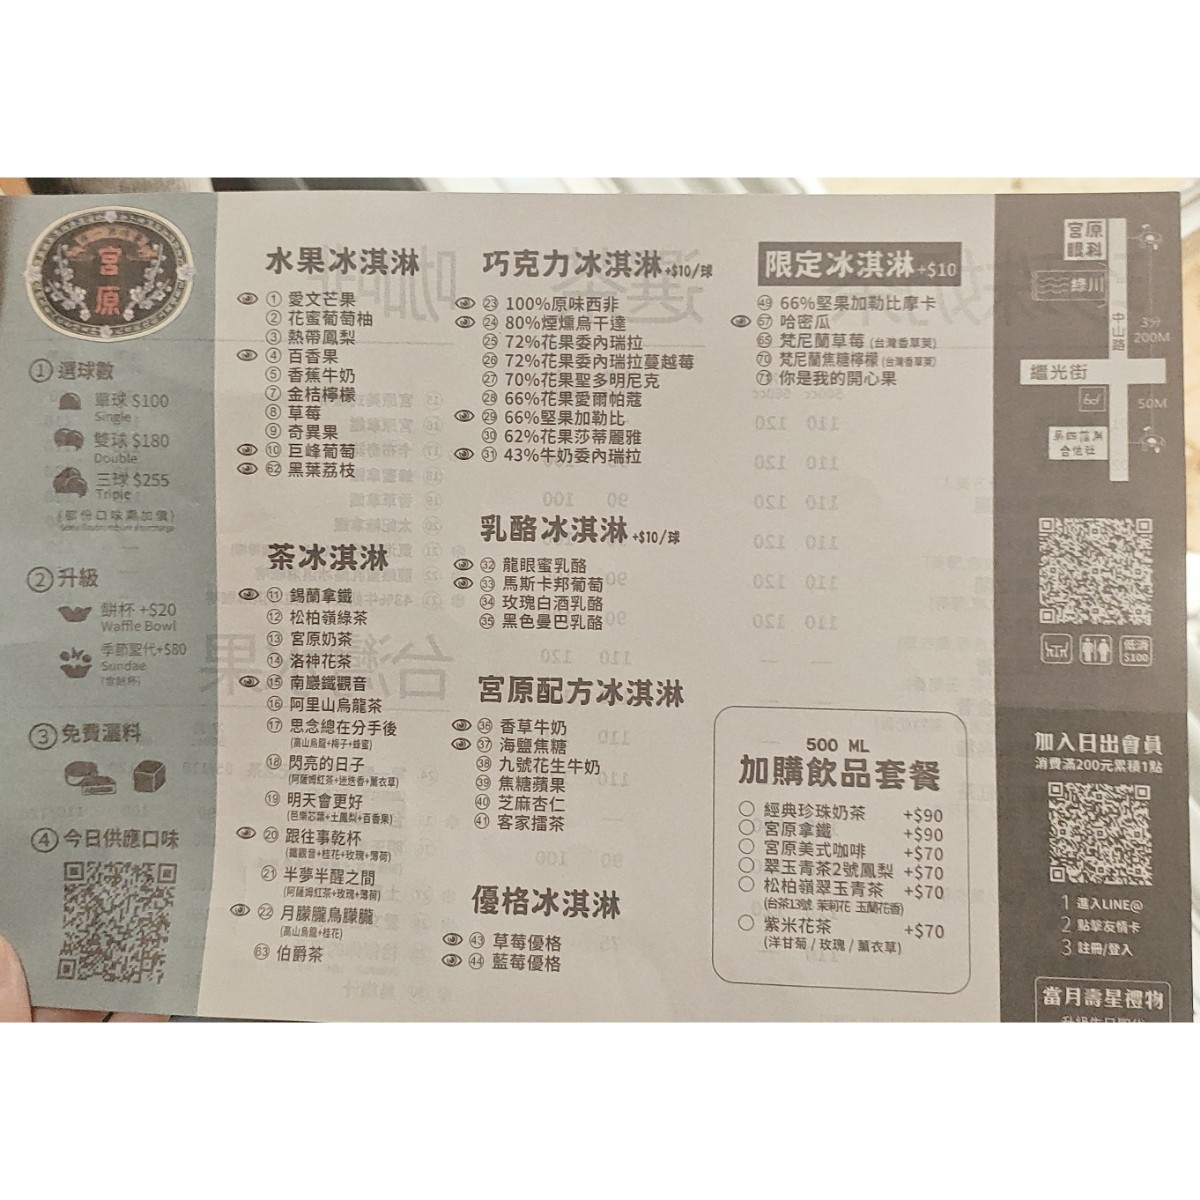 宮原
① 選球數
單球 $100
Single
雙球 $180
Double
三球 $255
Triple
(部份口味需加價)
② 升級
餅杯 +$20
Waffle Bowl
季節聖代+$80
Sundae
(含餅杯)
③ 免費灑料
④ 今日供應口味
水果冰淇淋
① 愛文芒果
② 花蜜葡萄柚
③ 熱帶鳳梨
④ 百香果
⑤ 香蕉牛奶
⑦ 金桔檸檬
⑧ 草莓
⑨ 奇異果
⑩ 巨峰葡萄
62 黑葉荔枝
茶冰淇淋
⑪ 錫蘭拿鐵
⑫ 松柏嶺綠茶
⑬ 宮原奶茶
⑭ 洛神花茶
⑮ 南巖鐵觀音
⑯ 阿里山烏龍茶
⑰ 思念總在分手後
(高山烏龍+梅子+蜂蜜)
⑱ 閃亮的日子
(阿薩姆紅茶+迷迭香+薰衣草)
⑲ 明天會更好
(芭樂芯葉+土鳳梨+百香果)
⑳ 跟往事乾杯
(鐵觀音+桂花+玫瑰+薄荷)
㉑ 半夢半醒之間
(阿薩姆紅茶+玫瑰+薄荷)
㉒ 月朦朧鳥朦朧
(高山烏龍+桂花)
63 伯爵茶
巧克力冰淇淋+$10/球
㉓ 100%原味西非
㉔ 80%煙燻烏干達
㉕ 72%花果委內瑞拉
㉖ 72%花果委內瑞拉蔓越莓
㉗ 70%花果聖多明尼克
㉘ 66%花果愛爾帕蔻
㉙ 66%堅果加勒比
㉚ 62%花果莎蒂麗雅
㉛ 43%牛奶委內瑞拉
乳酪冰淇淋+$10/球
㉜ 龍眼蜜乳酪
㉝ 馬斯卡邦葡萄
㉞ 玫瑰白酒乳酪
㉟ 黑色曼巴乳酪
宮原配方冰淇淋
㊱ 香草牛奶
㊲ 海鹽焦糖
㊳ 九號花生牛奶
㊴ 焦糖蘋果
㊵ 芝麻杏仁
㊶ 客家擂茶
優格冰淇淋
㊸ 草莓優格
㊹ 藍莓優格
限定冰淇淋+$10
㊾ 66%堅果加勒比摩卡
57 哈密瓜
65 梵尼蘭草莓 (台灣香草莢)
70 梵尼蘭焦糖檸檬 (台灣香草莢)
你是我的開心果
500 ML
加購飲品套餐
經典珍珠奶茶 +$90
宮原拿鐵 +$90
宮原美式咖啡 +$70
翠玉青茶2號鳳梨 +$70
松柏嶺翠玉青茶 +$70
(台茶13號 茉莉花 玉蘭花香)
紫米花茶 +$70
(洋甘菊 / 玫瑰 / 薰衣草)
宮原
眼科
綠川
中山路
3分
200M
繼光街
50M
低消
$100
加入日出會員
消費滿200元累積1點
1 進入LINE@
2 點擊友情卡
3 註冊/登入
當月壽星禮物